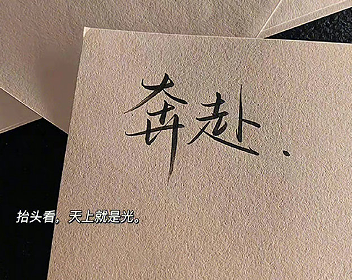 奔赴.
抬头看，天上就是光。